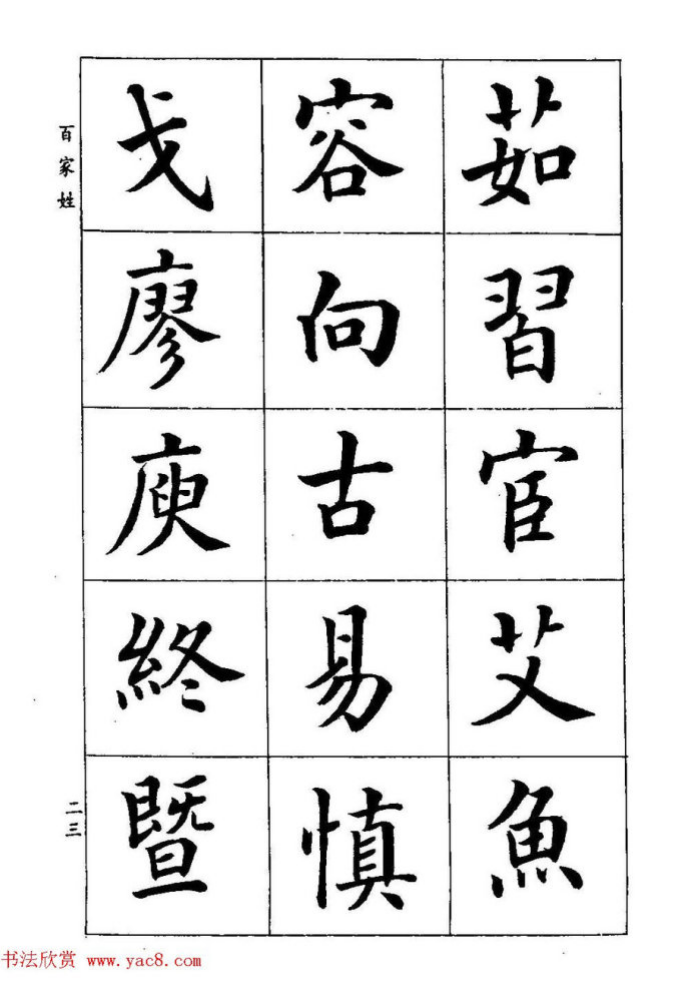 茹習宦艾魚
容向古易慎
戈廖庾終暨
百家姓
二三
书法欣赏 www.yac8.com